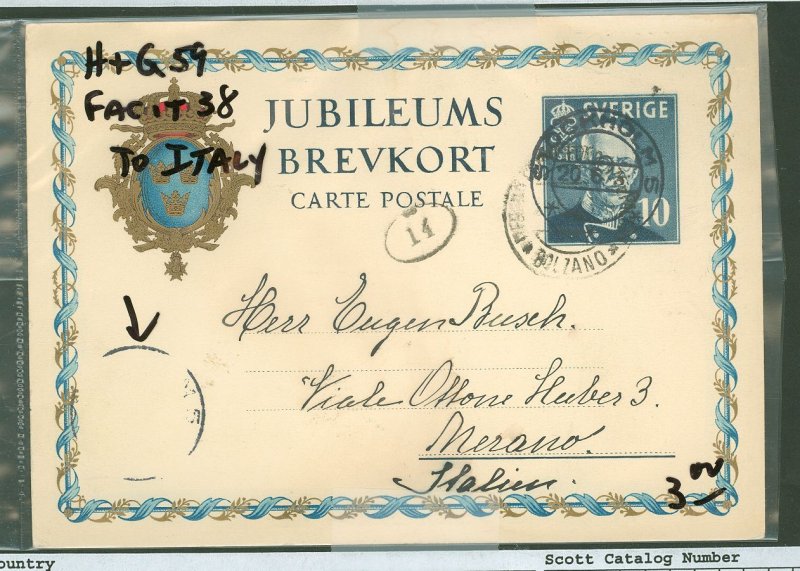 H+G 59
FACIT 38
TO ITALY
JUBILEUMS
BREVKORT
CARTE POSTALE
SVERIGE
10
STOCKHOLM 5
20.6
BOLZANO
14
Herr Eugen Busch.
Viale Ottone Huber 3.
Merano.
Italien.
3 00
ountry
Scott Catalog Number